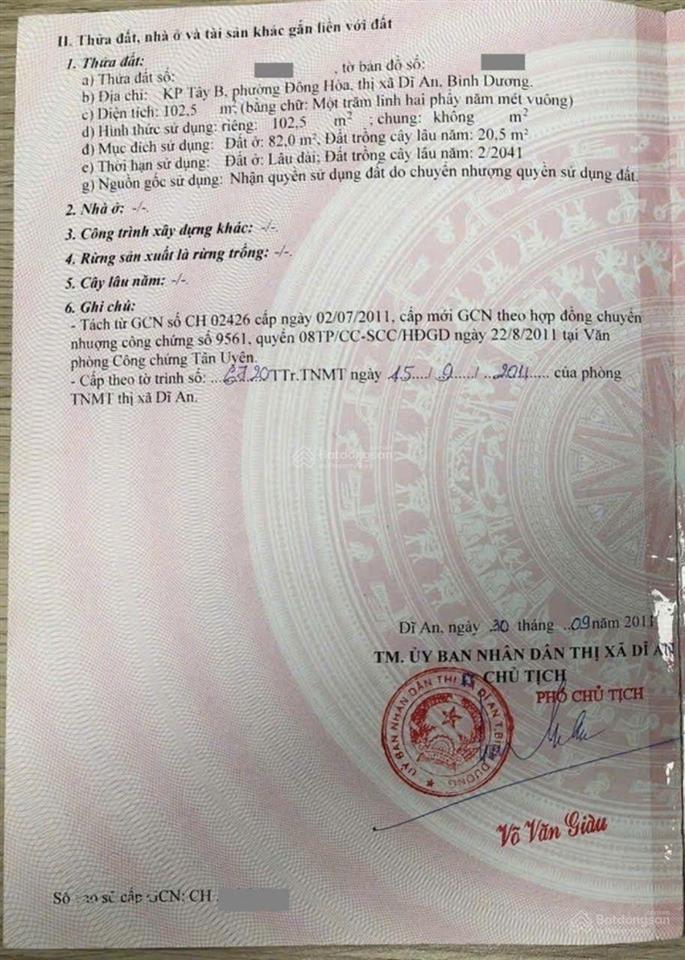 II. Thửa đất, nhà ở và tài sản khác gắn liền với đất
1. Thửa đất:
a) Thửa đất số: , tờ bản đồ số:
b) Địa chỉ: KP Tây B, phường Đông Hòa, thị xã Dĩ An, Bình Dương.
c) Diện tích: 102,5 m², (bằng chữ: Một trăm linh hai phẩy năm mét vuông)
d) Hình thức sử dụng: riêng: 102,5 m² ; chung: không m²
đ) Mục đích sử dụng: Đất ở: 82,0 m², Đất trồng cây lâu năm: 20,5 m²
e) Thời hạn sử dụng: Đất ở: Lâu dài; Đất trồng cây lâu năm: 2/2041
g) Nguồn gốc sử dụng: Nhận quyền sử dụng đất do chuyển nhượng quyền sử dụng đất.
2. Nhà ở: -/-.
3. Công trình xây dựng khác: -/-.
4. Rừng sản xuất là rừng trồng: -/-.
5. Cây lâu năm: -/-.
6. Ghi chú:
- Tách từ GCN số CH 02426 cấp ngày 02/07/2011, cấp mới GCN theo hợp đồng chuyển
nhượng công chứng số 9561, quyển 08TP/CC-SCC/HĐGD ngày 22/8/2011 tại Văn
phòng Công chứng Tân Uyên.
- Cấp theo tờ trình số: ...6720TTr.TNMT ngày 15..../.9...../....2011..... của phòng
TNMT thị xã Dĩ An.
Batdongsan
Dĩ An, ngày .30 tháng ..09 năm 2011
TM. ỦY BAN NHÂN DÂN THỊ XÃ DĨ AN
CHỦ TỊCH
PHÓ CHỦ TỊCH
ỦY BAN NHÂN DÂN THỊ XÃ DĨ AN T.BÌNH DƯƠNG
Võ Văn Giàu
Số vào sổ cấp GCN: CH
Batdongsan